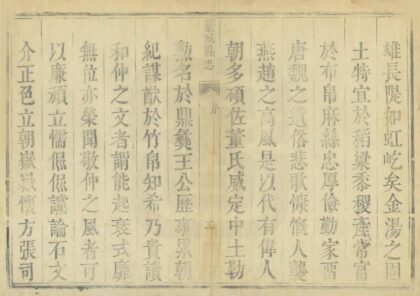 雄長隄如虹屹矣金湯之固
土特宜於稻粱黍稷產常富
於布帛麻絲忠厚儉勤家習
唐魏之遺俗悲歌慷慨人襲
燕趙之高風是以代有偉人
朝多碩佐董氏威定中土勒
藁城縣志
序
勲名於鼎彝王公歷事累朝
紀謀猷於竹帛知希乃貴讀
和仲之文者謂能起衰式靡
無位亦榮聞敬仲之風者可
以廉頑立懦侃侃讜論石文
介正色立朝嶽嶽懷方張司